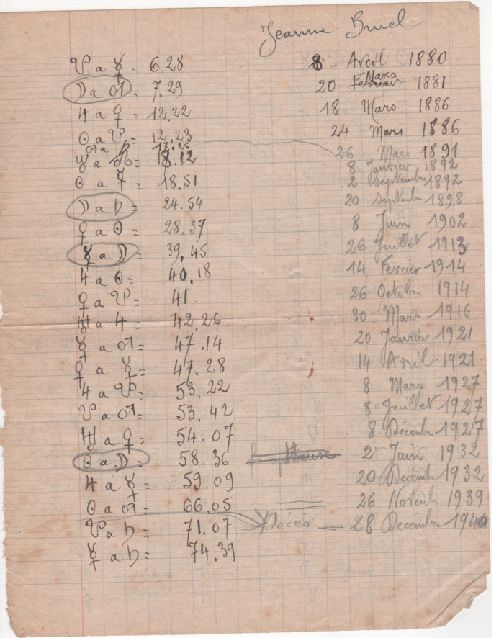 Jeanne Bruel
♆ a ☿ = 6.28 8 Avril 1880
☽ a ♂ = 7.29 20 Mars 1881
♃ a ♀ = 12.22 18 Mars 1886
⊙ a ♆ = 12.23 24 Mars 1886
26 Mars 1891
18.12 8 Janvier 1892
⊙ a ☿ = 18.51 2 Septembre 1892
☽ a ♄ = 24.54 20 Septembre 1898
♀ a ⊙ = 28.37 8 Juin 1902
☿ a ☽ = 39.45 26 Juillet 1913
♃ a ⊙ = 40.18 14 Fevrier 1914
♀ a ♆ = 41. 26 Octobre 1914
♅ a ♃ = 42.26 30 Mars 1916
☿ a ♂ = 47.14 20 Janvier 1921
♀ a ☿ = 47.28 14 Avril 1921
♃ a ♆ = 53.22 8 Mars 1927
♆ a ♂ = 53.42 8 Juillet 1927
♅ a ♀ = 54.07 8 Décembre 1927
⊙ a ☽ = 58.36 2 Juin 1932
♃ a ☿ = 59.09 20 Décembre 1932
⊙ a ♂ = 66.05 26 Novembre 1939
♆ a ♄ = 71.07 Décés — 28 Decembre
☿ a ♄ = 74.39